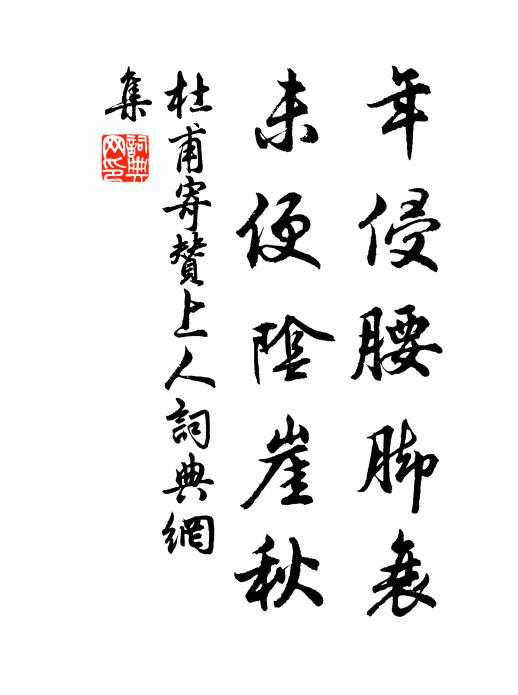 年侵腰脚衰
未便陰崖秋
杜甫寄贊上人詞典網
集
詞典网印